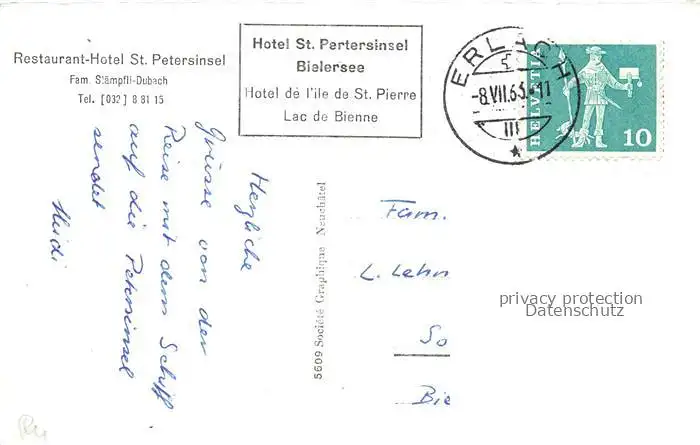 Restaurant-Hotel St. Petersinsel
Fam. Stämpfli-Dubach
Tel. [032] 8 81 15
Hotel St. Pertersinsel
Bielersee
Hotel de l'ile de St. Pierre
Lac de Bienne
ERLACH
-8.VII.63.-11
III
HELVETIA
10
Herzliche
Grüsse von der
Reise mit dem Schiff
auf die Petersinsel
sendet
Heidi
5609 Société Graphique Neuchâtel
Fam.
L. Lehn
So
Bie
privacy protection
Datenschutz